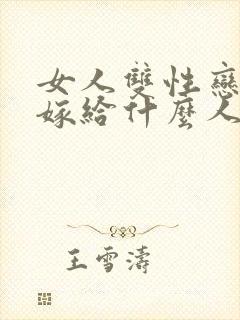 女人雙性戀
嫁給什麼人
王雪濤